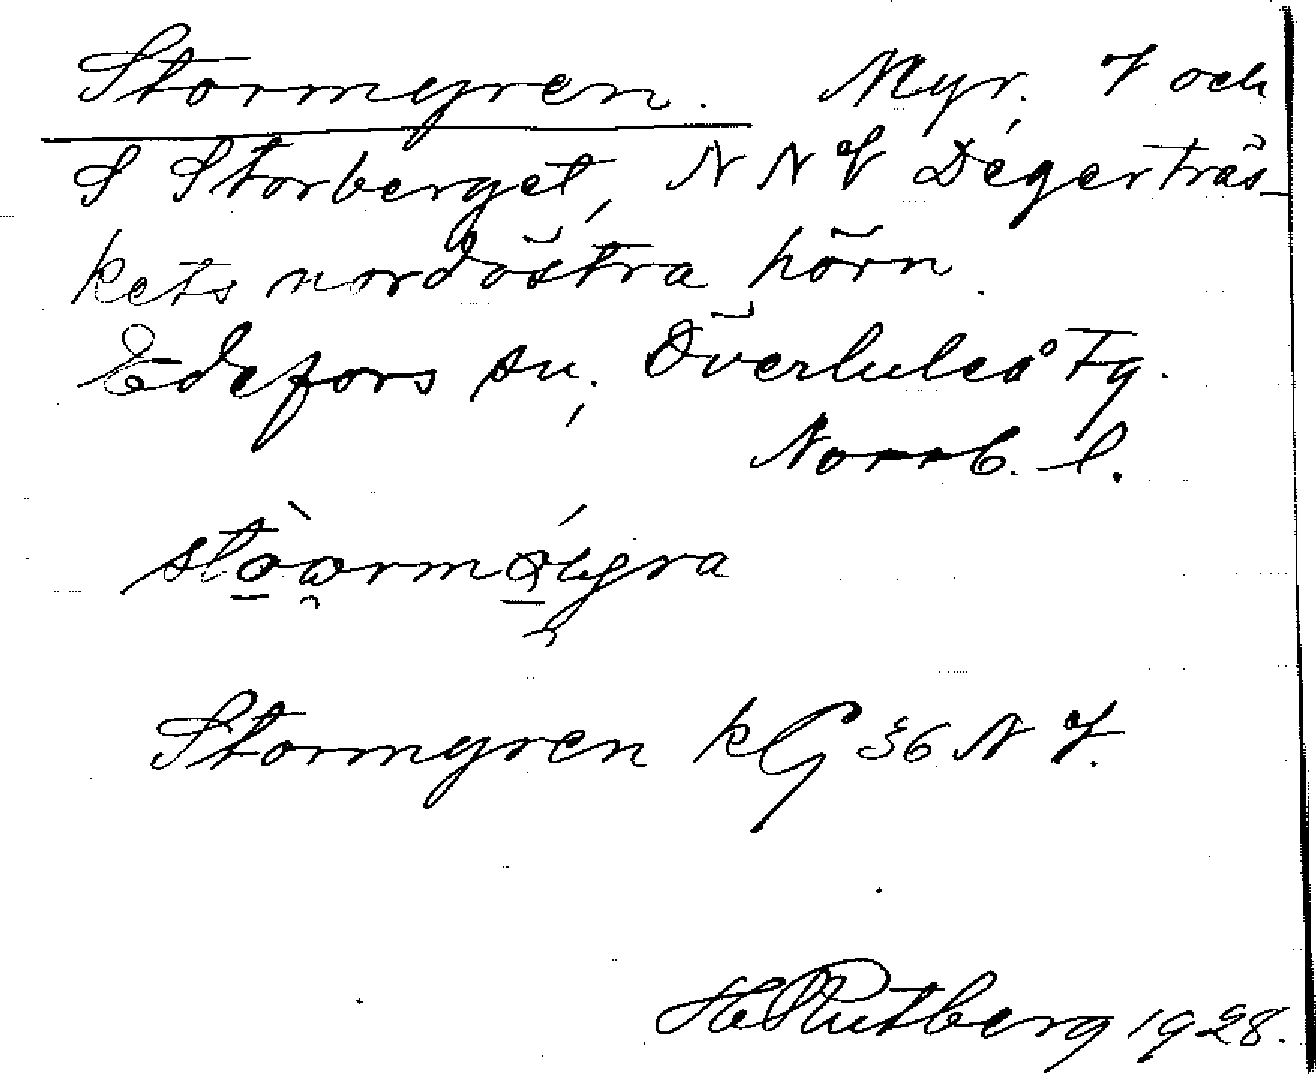 Stormyren. Myr. V och
S Storberget, N N V Degerträs-
kets nordöstra hörn.
Edefors sn, Överluleå tg.
Norrb. l.
Stormyren kG 36 N V.
H Rutberg 1928.